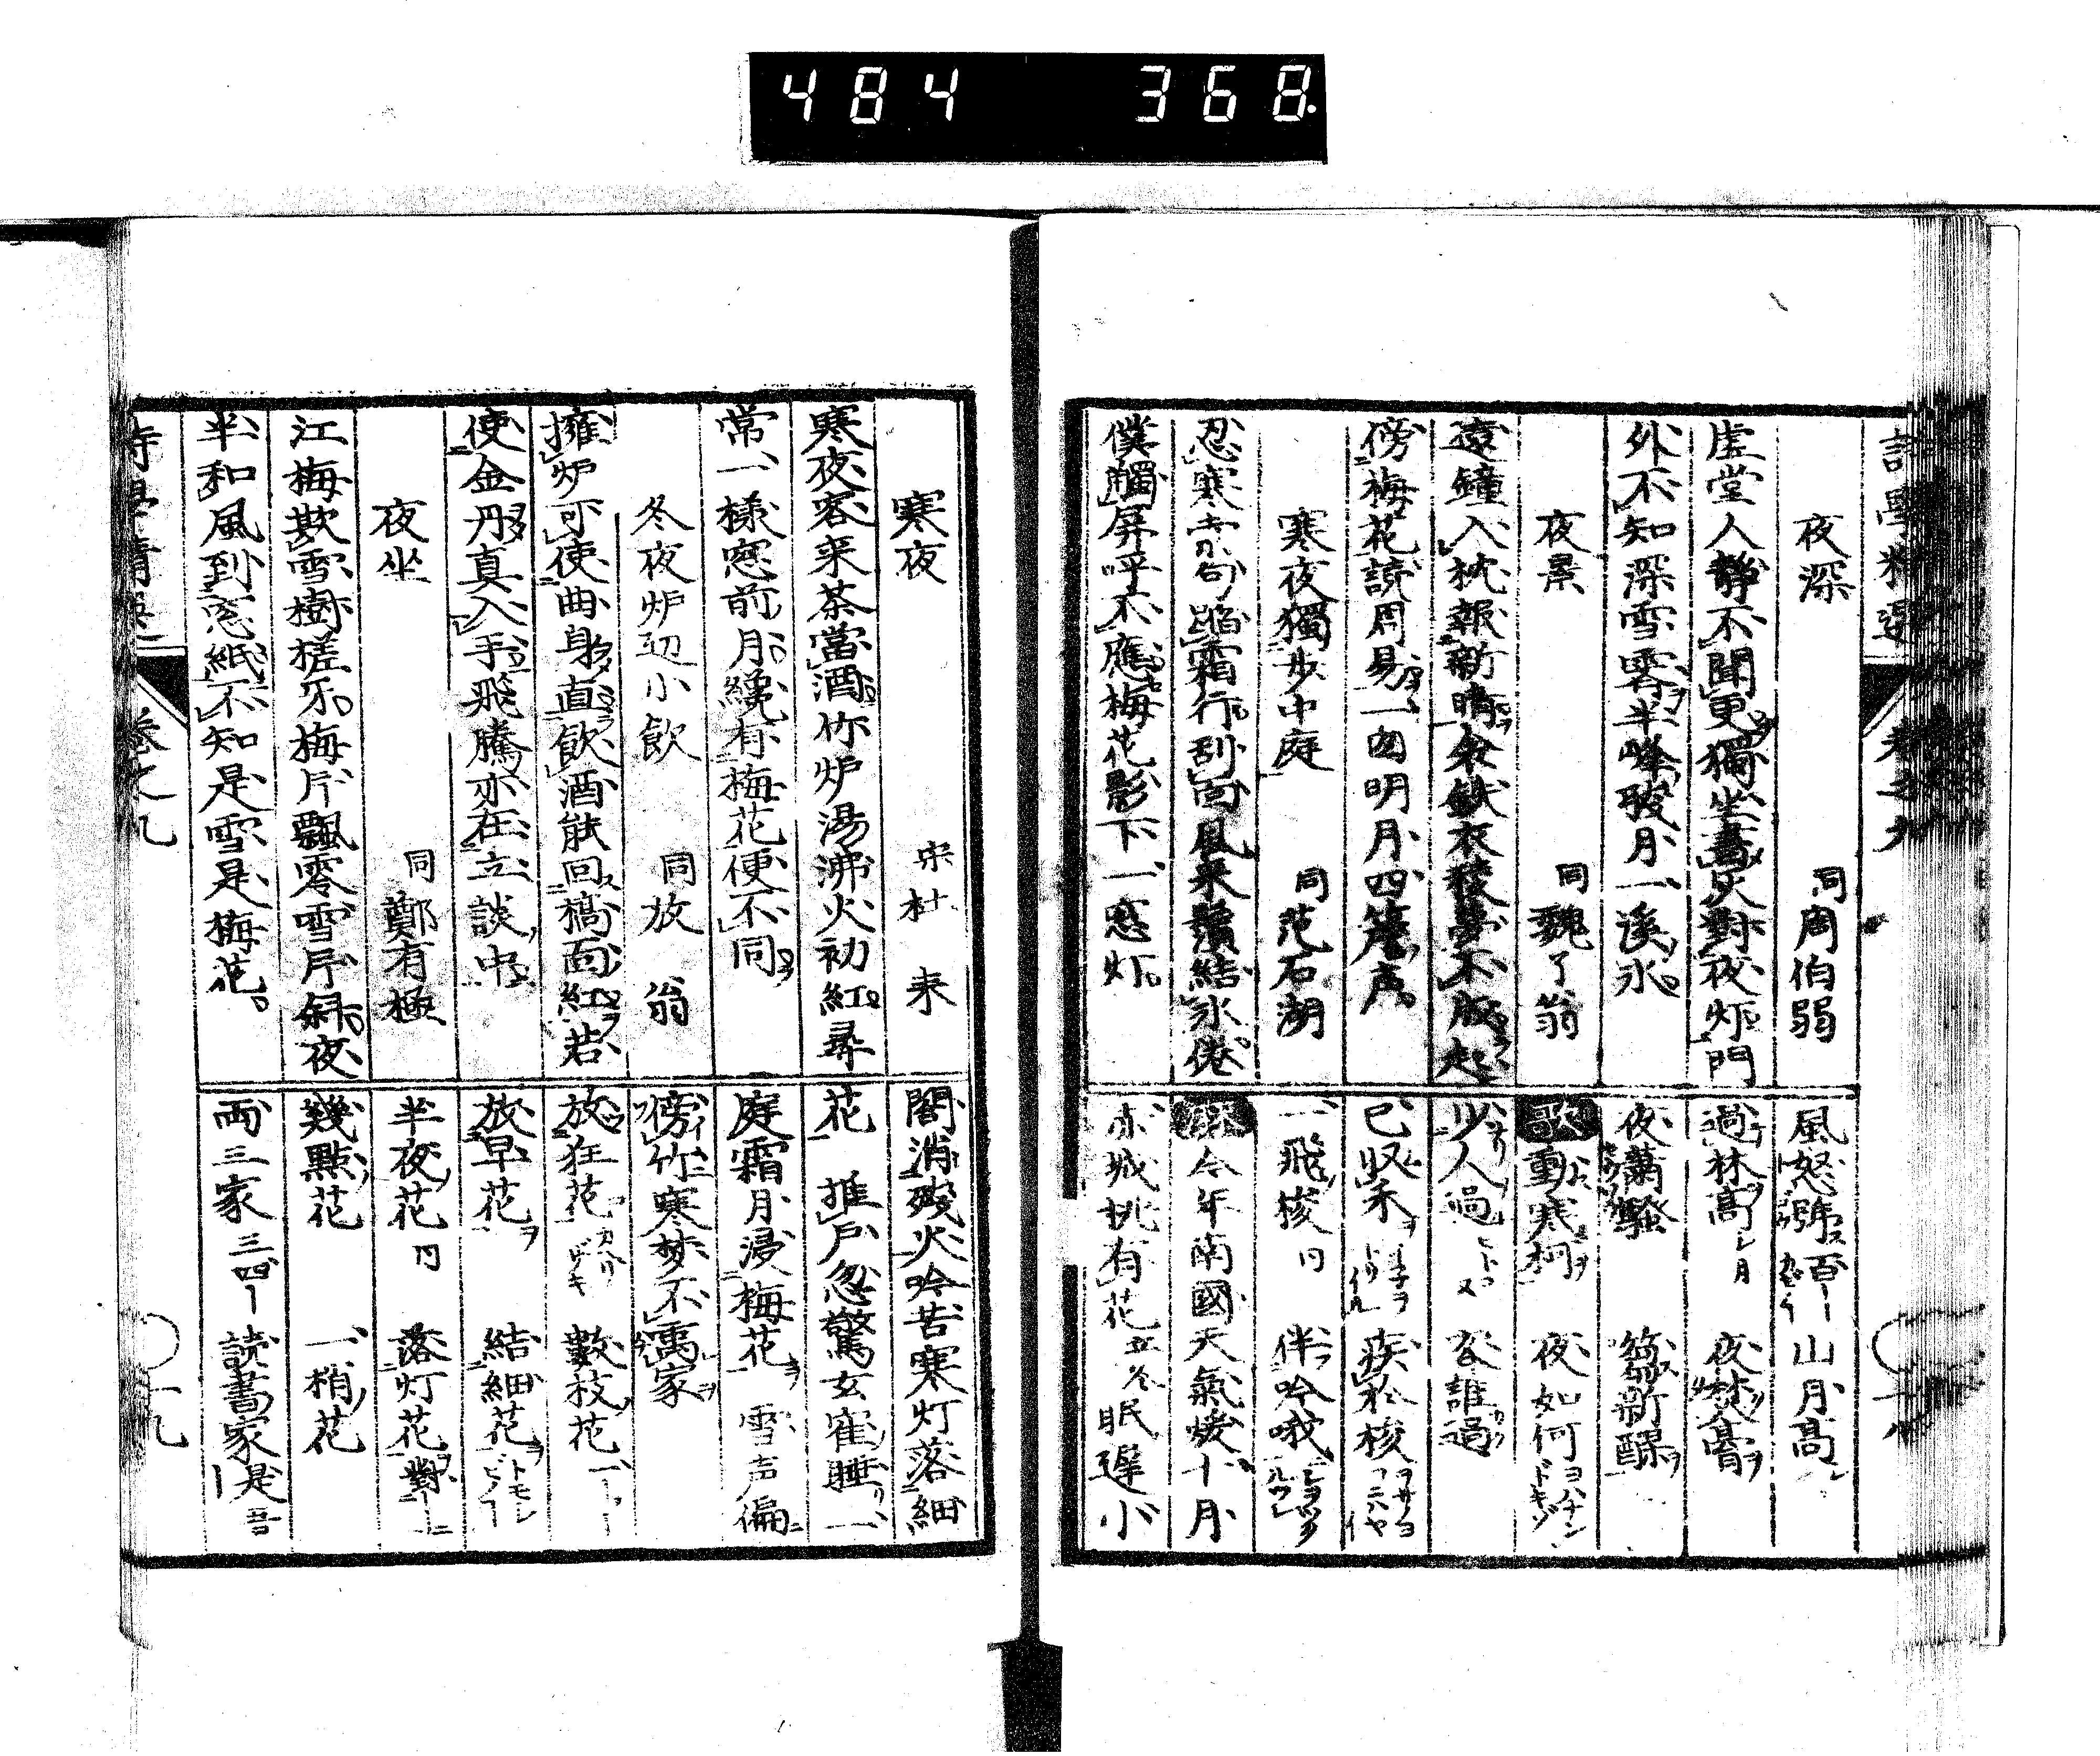 484 368
詩學精選 卷之九
夜深 同周伯弱
虚堂人靜不聞更獨坐書灰對夜炉門
外不知深雪零半峰殘月一溪氷
夜景 同魏了翁
遠鐘入枕報新晴衾鉄衣稜夢不成起
傍梅花読周易一囱明月四簷声
寒夜獨步中庭 同范石湖
忍寒索句踏霜行刮面風来鬚結氷倦
僕觸屏呼不應梅花影下一窓灯
風怒號 百 山月髙
過林髙 月 夜焚膏
夜蕭騒 篘新醪
歌動寒柯 夜如何
少人過 又 客誰過
已収禾 疾於梭
一飛梭 同 伴吟哦
今年南國天氣煖十月
赤城桃有花 立冬 眠遲小
寒夜 宋杜来
寒夜客来茶當酒竹炉湯沸火初紅尋
常一様窓前月纔有梅花便不同
冬夜炉辺小飲 同放翁
擁炉可使曲身直飲酒能回槁面紅若
使金丹真入手飛騰亦在立談中
夜坐 同鄭有極
江梅欺雪樹槎牙梅片飄零雪片斜夜
半和風到窓紙不知是雪是梅花
閣消残火吟苦寒灯落細
花 推戸忽驚玄寉睡一
庭霜月浸梅花 雪声偏
傍竹寒梦不寓家
放狂花 數枝花
放早花 結細花
半夜花 同 落灯花 對
幾點花 一梢花
両三家 三四 読書家 是吾
卷之九
十九